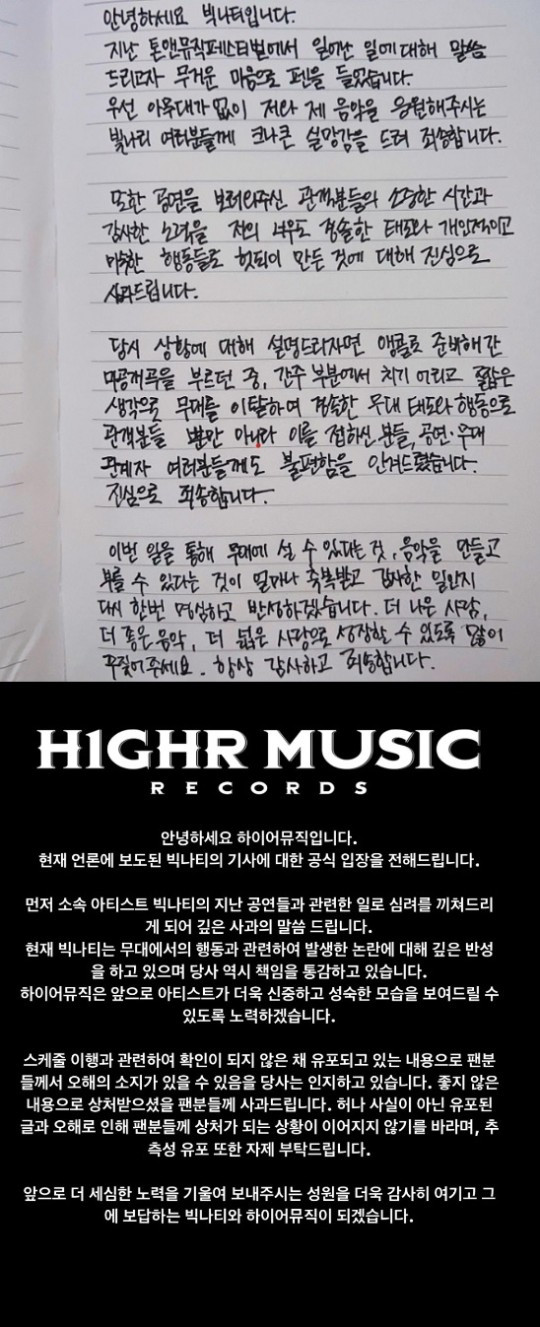 안녕하세요 빅나티입니다.
지난 톤앤뮤직페스티벌에서 일어난 일에 대해 말씀
드리고자 무거운 마음으로 펜을 들었습니다.
우선 아육대가 없이 저와 제 음악을 응원해주시는
빛나리 여러분들께 크나큰 실망감을 드려 죄송합니다.
또한 공연을 보러와주신 관객분들의 소중한 시간과
감사한 노력을 저의 너무도 경솔한 태도와 개인적이고
미숙한 행동들로 헛되이 만든 것에 대해 진심으로
사과드립니다.
당시 상황에 대해 설명드리자면 앵콜로 준비해간
미공개곡을 부르던 중, 간주 부분에서 치기 어리고 짧은
생각으로 무대를 이탈하여 경솔한 무대 태도와 행동으로
관객분들 뿐만 아니라 이를 접하신 분들, 공연·무대
관계자 여러분들께도 불편함을 안겨드렸습니다.
진심으로 죄송합니다.
이번 일을 통해 무대에 설 수 있다는 것, 음악을 만들고
부를 수 있다는 것이 얼마나 축복받고 감사한 일인지
다시 한번 명심하고 반성하겠습니다. 더 나은 사람,
더 좋은 음악, 더 넓은 사랑으로 성장할 수 있도록 많이
꾸짖어주세요. 항상 감사하고 죄송합니다.
H1GHR MUSIC
RECORDS
안녕하세요 하이어뮤직입니다.
현재 언론에 보도된 빅나티의 기사에 대한 공식 입장을 전해드립니다.
먼저 소속 아티스트 빅나티의 지난 공연들과 관련한 일로 심려를 끼쳐드리
게 되어 깊은 사과의 말씀 드립니다.
현재 빅나티는 무대에서의 행동과 관련하여 발생한 논란에 대해 깊은 반성
을 하고 있으며 당사 역시 책임을 통감하고 있습니다.
하이어뮤직은 앞으로 아티스트가 더욱 신중하고 성숙한 모습을 보여드릴 수
있도록 노력하겠습니다.
스케줄 이행과 관련하여 확인이 되지 않은 채 유포되고 있는 내용으로 팬분
들께서 오해의 소지가 있을 수 있음을 당사는 인지하고 있습니다. 좋지 않은
내용으로 상처받으셨을 팬분들께 사과드립니다. 허나 사실이 아닌 유포된
글과 오해로 인해 팬분들께 상처가 되는 상황이 이어지지 않기를 바라며, 추
측성 유포 또한 자제 부탁드립니다.
앞으로 더 세심한 노력을 기울여 보내주시는 성원을 더욱 감사히 여기고 그
에 보답하는 빅나티와 하이어뮤직이 되겠습니다.